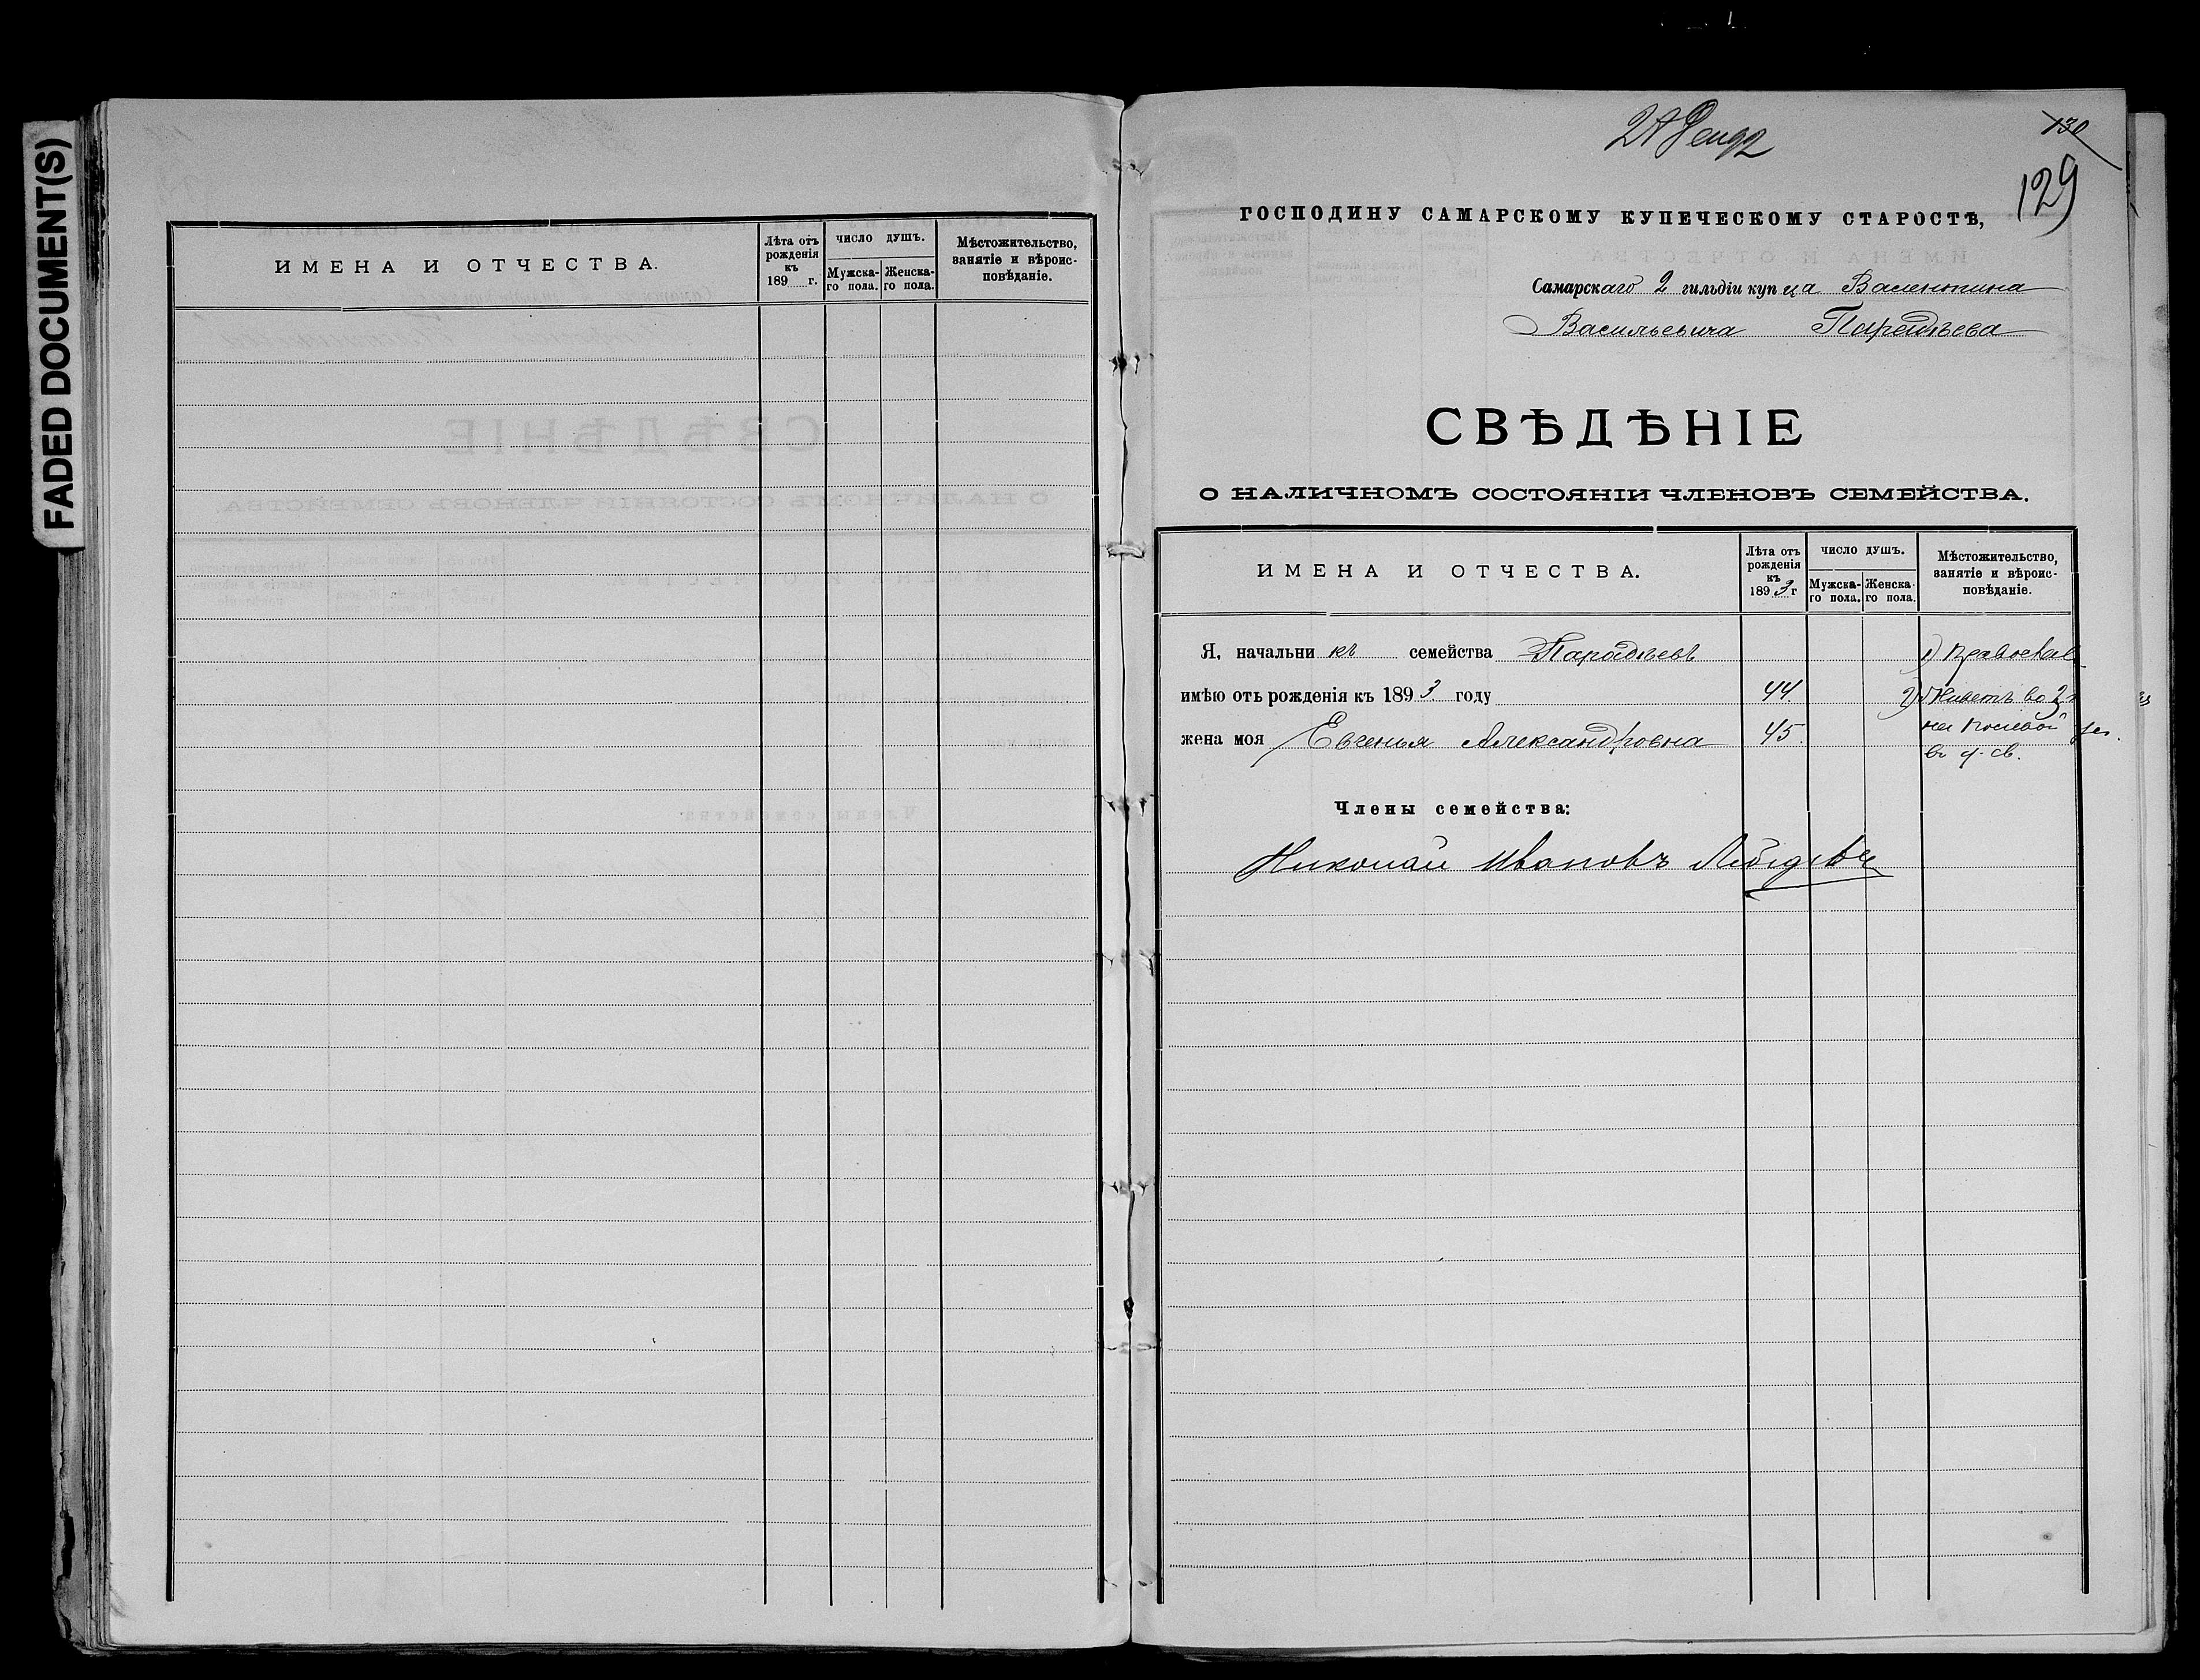 FADED DOCUMENT(S)
ИМЕНА И ОТЧЕСТВА.
Лѣта отъ рожденія къ 189 г.
ЧИСЛО ДУШЪ.
Мужска-го пола.
Женска-го пола.
Мѣстожительство, занятіе и вѣроис-повѣданіе.
130
129
ГОСПОДИНУ САМАРСКОМУ КУПЕЧЕСКОМУ СТАРОСТѢ,
Самарскаго 2 гильдіи купца Валентина
Васильевича
СВѢДѢНІЕ
О НАЛИЧНОМЪ СОСТОЯНІИ ЧЛЕНОВЪ СЕМЕЙСТВА.
ИМЕНА И ОТЧЕСТВА.
Лѣта отъ рожденія къ 1893 г
ЧИСЛО ДУШЪ.
Мужска-го пола.
Женска-го пола.
Мѣстожительство, занятіе и вѣроис-повѣданіе.
Я, начальникъ семейства
1)
имѣю отъ рожденія къ 1893 году 44. 2) Живетъ во 2
жена моя Евгенья Александровна 45. на
въ
Члены семейства:
Николай Ивановъ